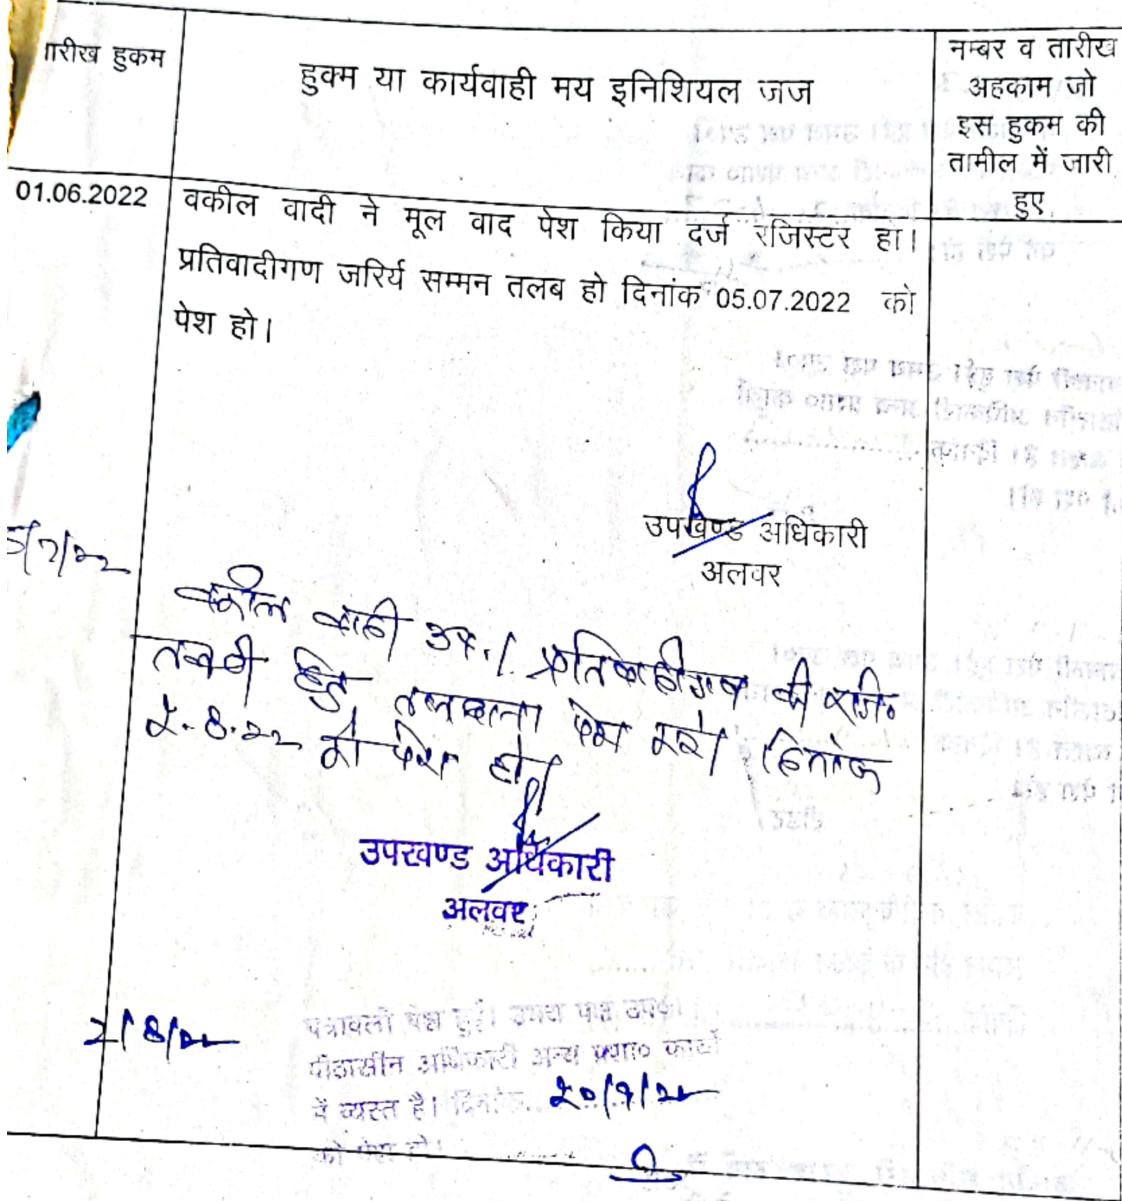 तारीख हुकम
हुक्म या कार्यवाही मय इनिशियल जज
नम्बर व तारीख
अहकाम जो
इस हुकम की
तामील में जारी
हुए
01.06.2022
वकील वादी ने मूल वाद पेश किया दर्ज रजिस्टर हो।
प्रतिवादीगण जरिये सम्मन तलब हो दिनांक 05.07.2022 को
पेश हो।
उपखण्ड अधिकारी
अलवर
5/7/22
वकील वादी उप.। प्रतिवादीगण की रजि०
तलबी हेतु तलबाना पेश करे। दिनांक
2-8-22 को पेश हो।
उपखण्ड अधिकारी
अलवर
2/8/22
पत्रावली पेश हुई। उभय पक्ष उप०।
पीठासीन अधिकारी अन्य प्रशा० कार्यो
में व्यस्त है। दिनांक 20/9/22
को पेश हो।